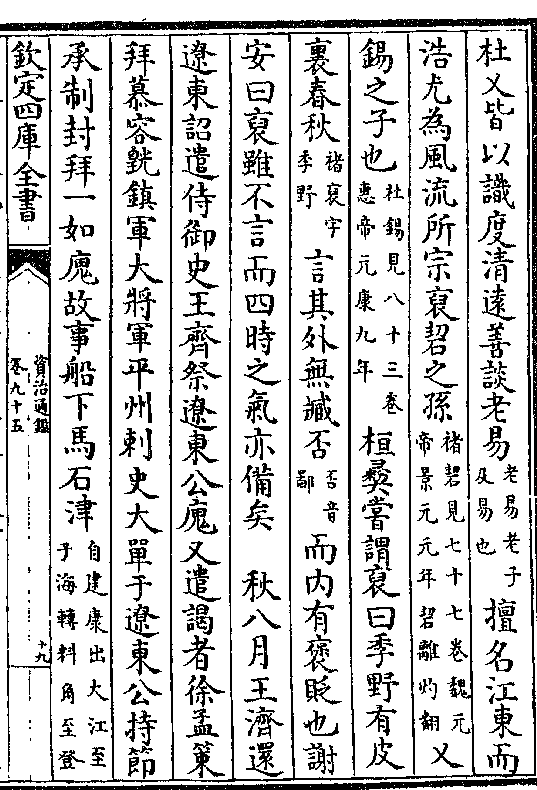 杜乂皆以識度清遠善談老易老易老子及易也擅名江東而
浩尤為風流所宗裒䂮之孫褚䂮見七十七卷魏元帝景元元年䂮離灼翻乂
錫之子也杜錫見八十三卷惠帝元康九年桓彞嘗謂裒曰季野有皮
裏春秋褚裒字季野言其外無臧否否音鄙而内有褒貶也謝
安曰裒雖不言而四時之氣亦備矣 秋八月王濟還
遼東詔遣侍御史王齊祭遼東公廆又遣謁者徐孟策
拜慕容皝鎮軍大將軍平州刺史大單于遼東公持節
承制封拜一如廆故事船下馬石津自建康出大江至于海轉料角至登
欽定四庫全書
資治通鑑
卷九十五
十九